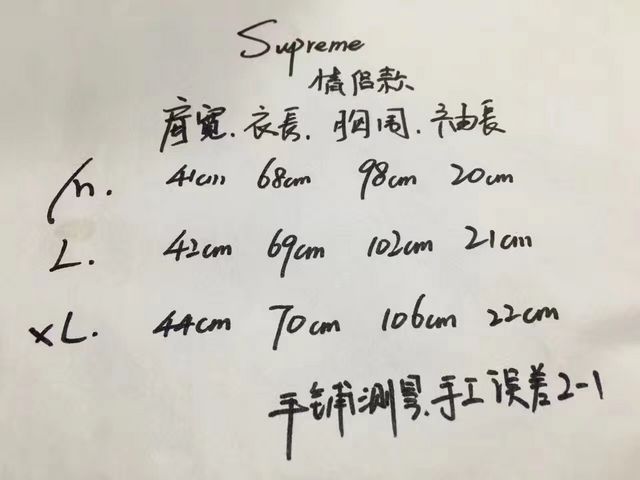 Supreme
情侣款
肩寬. 衣長. 胸围. 袖長
m. 41cm 68cm 98cm 20cm
L. 42cm 69cm 102cm 21cm
XL. 44cm 70cm 106cm 22cm
手铺测量.手工误差2-1